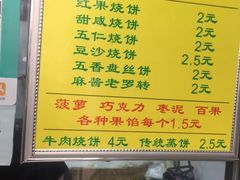 红果烧饼 2元
甜咸烧饼 2元
五仁烧饼 2元
豆沙烧饼 2.5元
五香盘丝饼 2元
麻酱老罗转 2元
菠萝 巧克力 枣泥 百果
各种果馅每个1.5元
牛肉烧饼 4元 传统蒸饼 2.5元